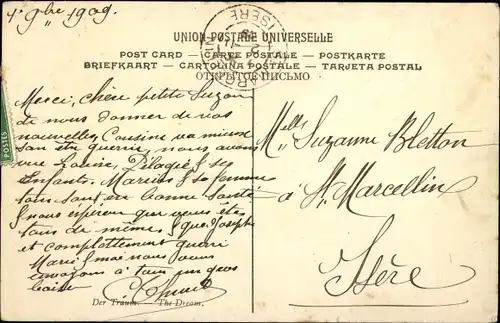 4 9bre 1909.
ISÈRE
UNION POSTALE UNIVERSELLE
POST CARD — CARTE POSTALE — POSTKARTE
BRIEFKAART — CARTOLINA POSTALE — TARJETA POSTAL
ОТКРЫТОЕ ПИСЬМО
POSTES
Merci, chère petite Suzon
de nous donner de vos
nouvelles Cousine va mieux
sans être guérie, nous avons
vue Louise, & ses
Enfants. & sa femme
tous sont en bonne Santé
& nous espérons que vous êtes
tous de même, & que Joseph
et complettement guéri
Marie & moi nous vous
envoyons à tous un gros
baiser
Melle Suzanne Bletton
à St. Marcellin
Isère
Der Traum. — The Dream.